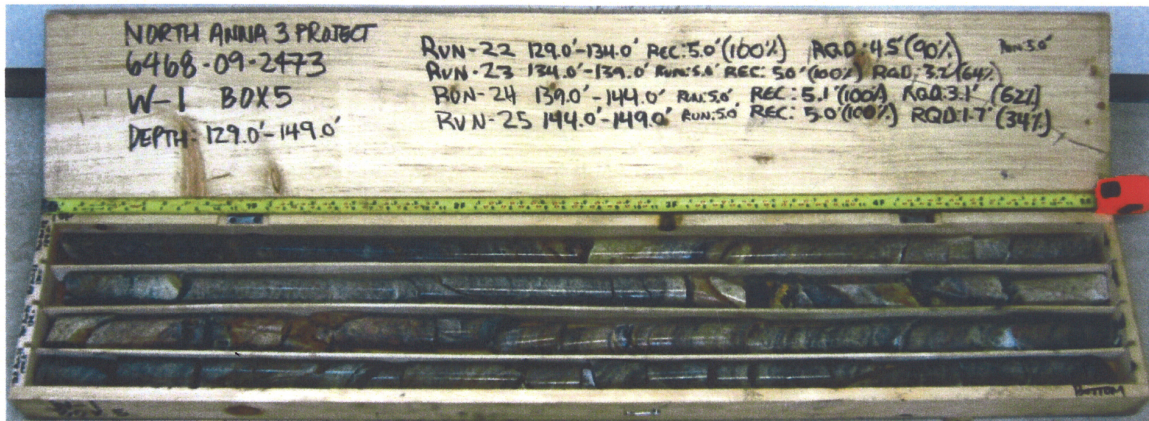 NORTH ANNA 3 PROJECT
6468-09-2473
W-1 BOX 5
DEPTH: 129.0'-149.0'
RUN-22 129.0'-134.0' REC: 5.0' (100%) RQD: 4.5' (90%) RUN: 5.0'
RUN-23 134.0'-139.0' RUN: 5.0' REC: 5.0' (100%) RQD: 3.2' (64%)
RUN-24 139.0'-144.0' RUN: 5.0' REC: 5.1' (100%) RQD: 3.1' (62%)
RUN-25 144.0'-149.0' RUN: 5.0' REC: 5.0' (100%) RQD: 1.7' (34%)
BOTTOM
W-1
BOX 5